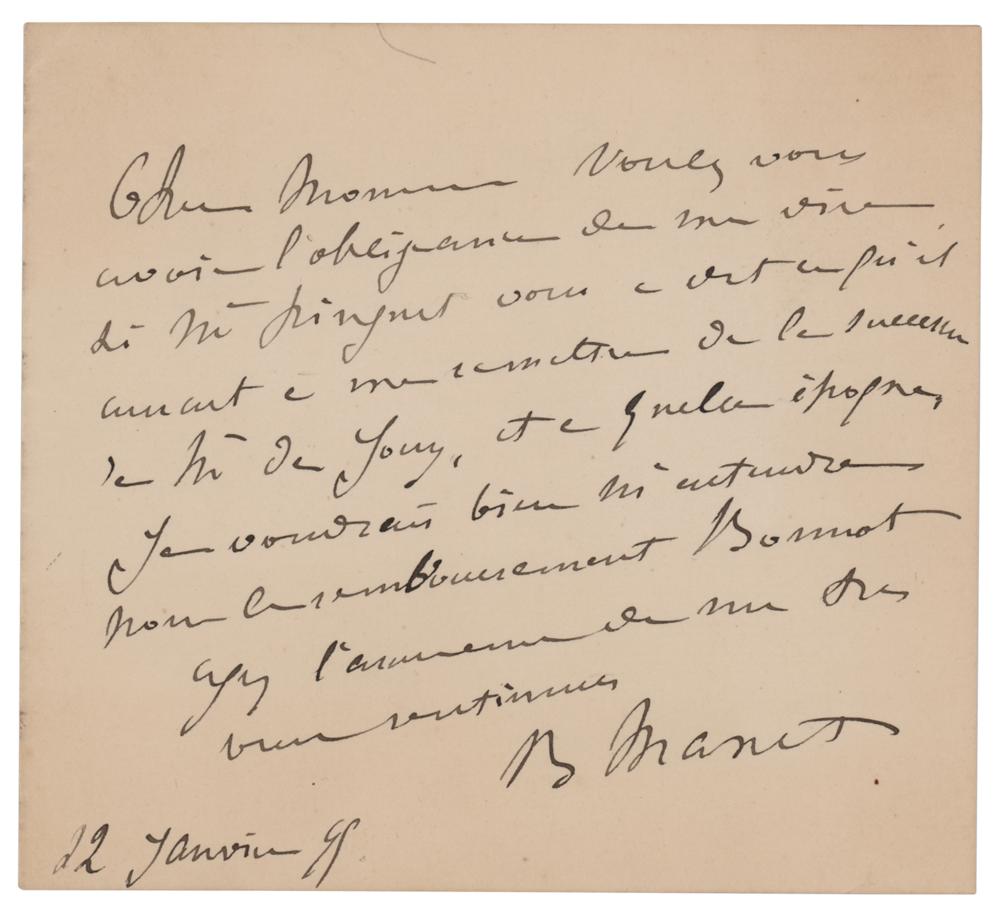 Cher Monsieur Voulez vous
avoir l'obligeance de me dire
si Mr vous a dit ce qu'il
aurait a me remettre de la succession
de Mr de Jouy, et a quelle époque,
Je voudrais bien m'entendre
pour le remboursement Bonnot
agréez l'assurance de mes très
vrais sentiments
B Manet
22 Janvier 95